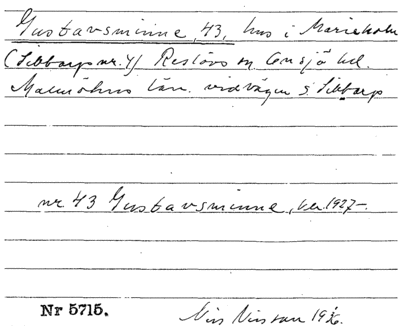 Gustavsminne, 43, hus i Marieholm
(Sibbarp nr. 4) Reslövs sn Onsjö hd.
Malmöhus län. vid vägen S. Sibbarp
nr 43 Gustavsminne, 1927-
Nr 5715.
Nils Nilsson 19